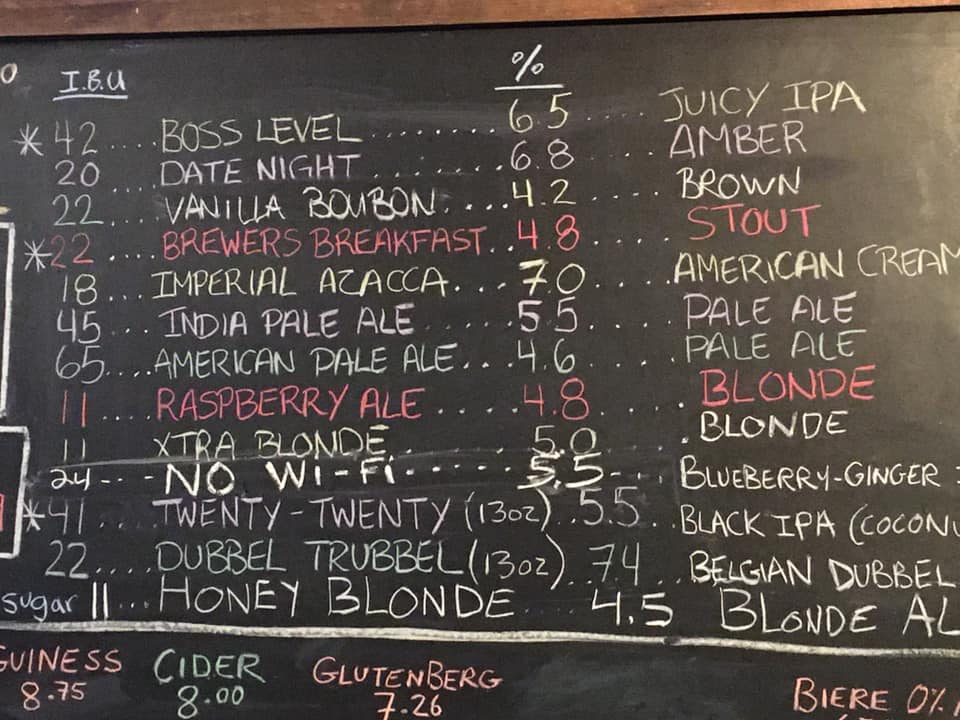 I.B.U %
* 42 .... BOSS LEVEL ........ 6.5 .... JUICY IPA
20 .... DATE NIGHT ....... 6.8 .... AMBER
22 ... VANILLA BOUBON .... 4.2 .... BROWN
* 22 .... BREWERS BREAKFAST .. 4.8 .... STOUT
18 ... IMPERIAL AZACCA ... 7.0 .... AMERICAN CREAM
45 ... INDIA PALE ALE ..... 5.5 .... PALE ALE
65 .... AMERICAN PALE ALE ... 4.6 .... PALE ALE
11 .... RASPBERRY ALE ..... 4.8 .... BLONDE
11 XTRA BLONDE .. 5.0 . BLONDE
24 -- - NO WI-FI ...... 5.5 -.. BLUEBERRY-GINGER
* 41 .... TWENTY-TWENTY (13oz) .. 5.5 .. BLACK IPA (COCONU
22 .... DUBBEL TRUBBEL (13oz) .. 7.4 .. BELGIAN DUBBEL
sugar 11 ... HONEY BLONDE 4.5 BLONDE AL
GUINESS CIDER GLUTENBERG
8.75 8.00 7.26 BIERE 0%